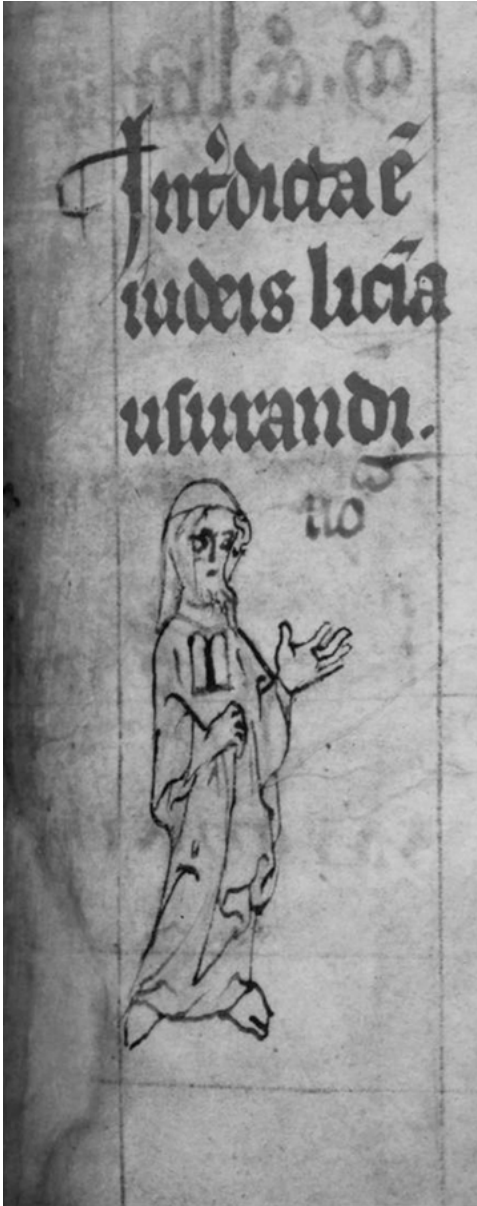 Int͛dicta ē
iudeis licīa
usurandi.
no